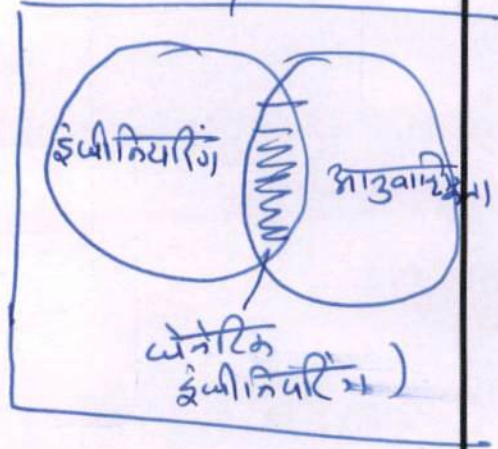 इंजीनियरिंग
आनुवांशिकता
जेनेटिक
इंजीनियरिंग)